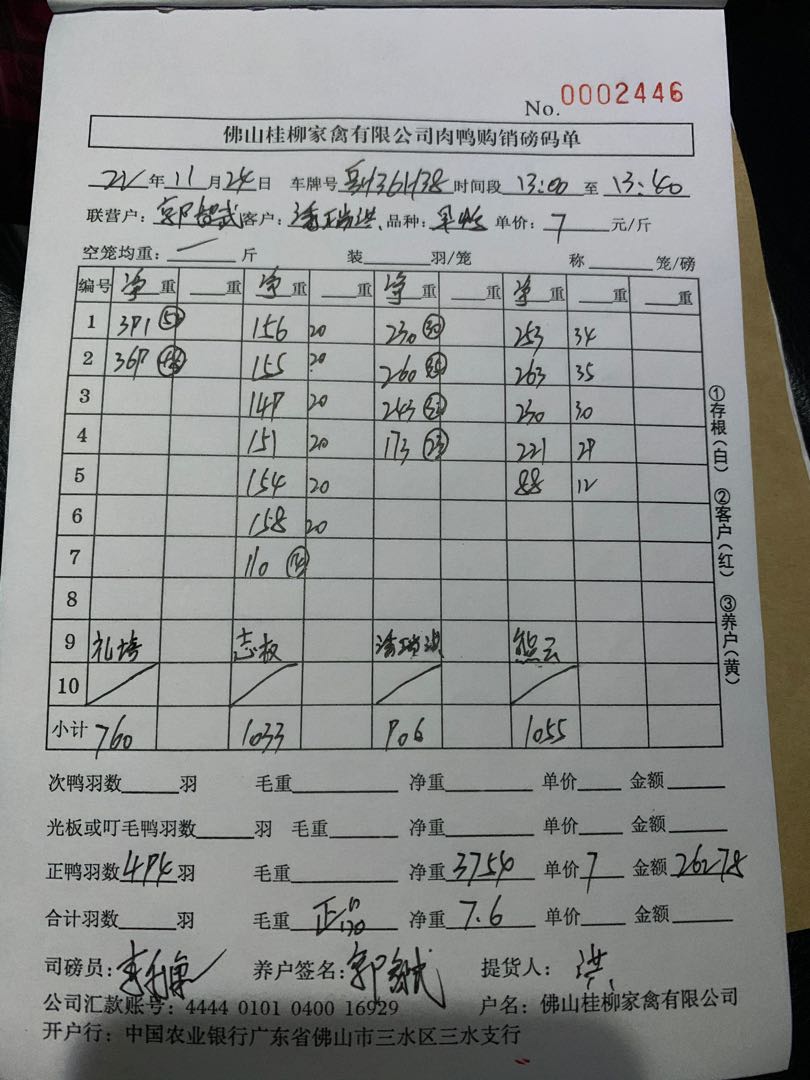 No. 0002446
佛山桂柳家禽有限公司肉鸭购销磅码单
22年11月24日 车牌号 时间段 13:00 至 13:40
联营户： 客户：潘瑞洪 品种： 单价：7 元/斤
空笼均重： 斤 装 羽/笼 称 笼/磅
编号 净重 重 净重 重 净重 重 净重 重 重
1 391 156 20 230 30 253 34
2 369 155 20 260 35 263 35
3 149 20 243 230 30
4 151 20 173 23 221 29
5 154 20 88 12
6 158 20
7 110
8
9 志板 潘瑞洪 熊云
10
小计 760 1033 906 1055
①存根（白） ②客户（红） ③养户（黄）
次鸭羽数 羽 毛重 净重 单价 金额
光板或叮毛鸭羽数 羽 毛重 净重 单价 金额
正鸭羽数494羽 毛重 净重3754 单价7 金额26278
合计羽数 羽 毛重 净重7.6 单价 金额
司磅员： 养户签名： 提货人：洪
公司汇款账号：4444 0101 0400 16929 户名：佛山桂柳家禽有限公司
开户行：中国农业银行广东省佛山市三水区三水支行